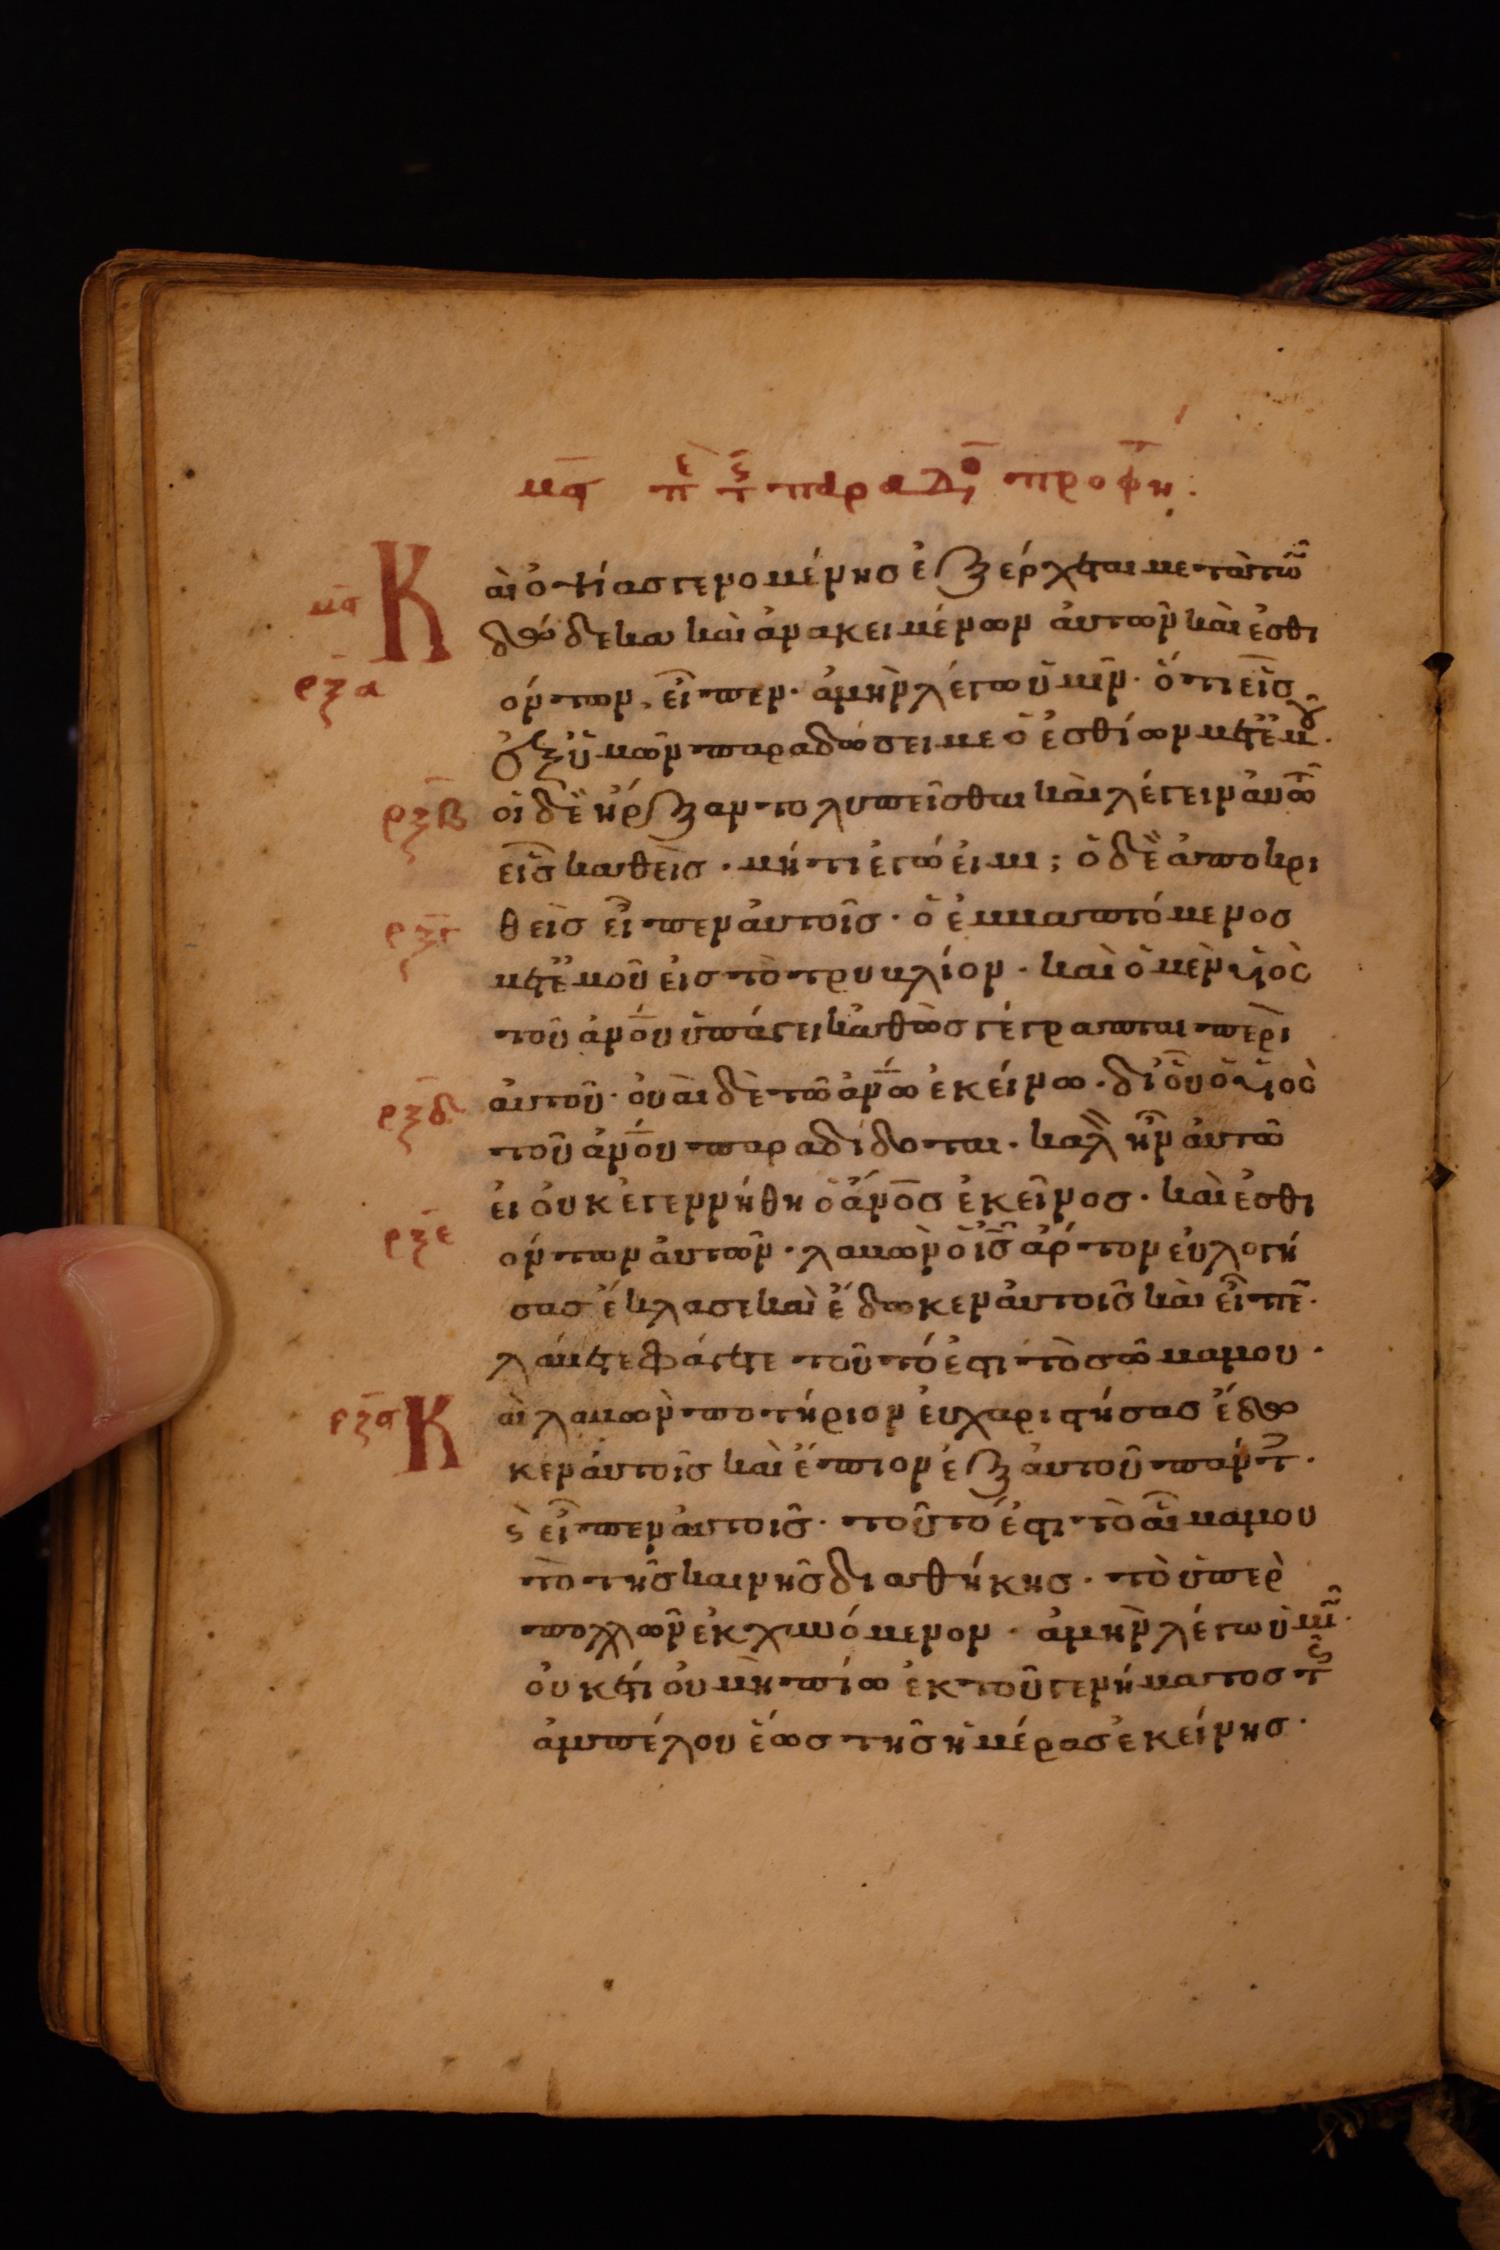 μς πε της παραδο προφη:
Κ αὶ ὀψίας γενομένησ ἐξέρχεται μετὰ τῶ
μς
δώδεκα καὶ ἀνακειμένων ἀυτῶν καὶ ἐσθι
ρξα
όντων, εἶπεν· ἀμὴν λέγω ὑμῖν· ὅτι εἷσ
ἐξ ὑμῶν παραδώσει με ὁ ἐσθίων μετ ἐμοῦ·
ρξβ οἱ δὲ ἤρξαντο λυπεῖσθαι καὶ λέγειν ἀυτῶ
εἷσ καθεὶσ· μήτι ἐγώ ἐιμι; ὁ δὲ ἀποκρι
ρξγ θεὶσ εἶπεν ἀυτοῖσ· ὁ ἐμβαπτόμενοσ
μετ ἐμοῦ ἐισ τὸ τρυβλίον· καὶ ὁ μὲν υἱὸς
τοῦ ἀνου ὑπάγει καθὼσ γέγραπται περὶ
ρξδ ἀυτοῦ· ὀυαὶ δὲ τῶ ἀνω ἐκείνω· δι οὗ ὁ υἱὸς
τοῦ ἀνου παραδίδοται· καλὸν ἦν ἀυτῶ
ἐι ὀυκ ἐγεννήθη ὁ ἄνοσ ἐκεῖνοσ· καὶ ἐσθι
ρξε όντων ἀυτῶν· λαβὼν ὁ ισ ἄρτον ἐυλογή
σασ ἔκλασε καὶ ἔδωκεν ἀυτοῖσ καὶ εἶπε·
λάβετε φάγετε τοῦτό ἐστι τὸ σῶμα μου·
ρξς Κ αὶ λαβὼν ποτήριον ἐυχαριστήσασ ἔδω
κεν ἀυτοῖσ καὶ ἔπιον ἐξ ἀυτοῦ πάντ·
ϗ εἶπεν ἀυτοῖσ· τοῦτό ἐστι τὸ αἷμα μου
τὸ τῆσ καινῆσ διαθήκησ· τὸ ὑπὲρ
πολλῶν ἐκχυνόμενον· ἀμὴν λέγω ὑμῖ·
ὀυκέτι ὀυ μὴ πίω ἐκ τοῦ γενήματοσ τῆς
ἀμπέλου ἕωσ τῆσ ἡμέρασ ἐκείνησ·